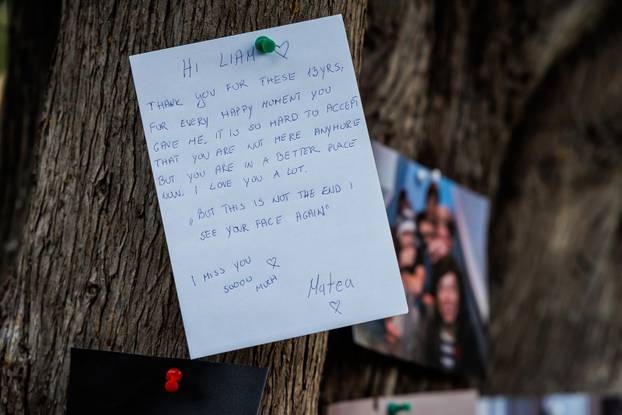 HI LIAM ♡
THANK YOU FOR THESE 13YRS,
FOR EVERY HAPPY MOMENT YOU
GAVE ME. IT IS SO HARD TO ACCEPT
THAT YOU ARE NOT HERE ANYMORE
BUT YOU ARE IN A BETTER PLACE
NOW. I LOVE YOU A LOT.
„BUT THIS IS NOT THE END I
SEE YOUR FACE AGAIN"
I MISS YOU ♡
SOOOO MUCH
Matea
♡